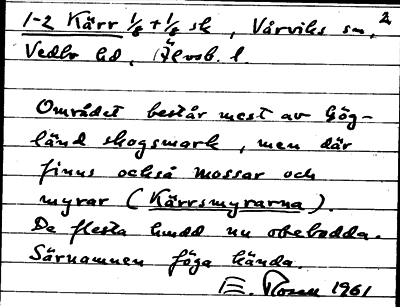 1-2 Kärr 1/8 + 1/8 sk, Vårviks sn, 2
Vedbo hd, Älvsb. l.
Området består mest av hög-
länd skogsmark, men där
finns också mossar och
myrar (Kärrsmyrarna).
De flesta hmdd nu obebodda.
Särnamnen föga kända.
E. Rosen 1961